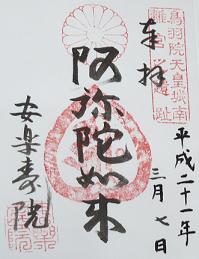 奉拝
鳥羽院天皇城南
離宮御遺址
平成二十一年
三月七日
阿弥陀如来
安楽寿院